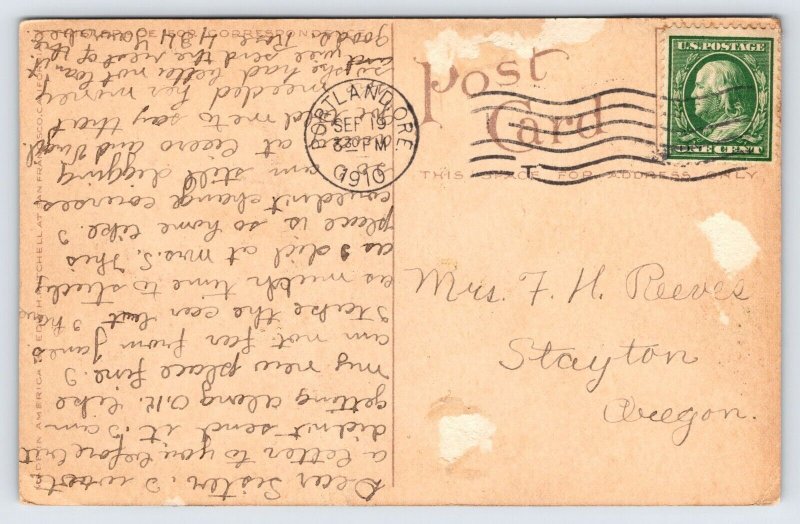 Post
Card
THIS SPACE FOR ADDRESS ONLY
U.S. POSTAGE
ONE CENT
PORTLAND ORE
SEP 19
330 PM
1910
T
Mrs. F. H. Reeves
Stayton
Oregon.
Dear Sister: I wrote
a letter to you before but
didn't send it. I am
getting along O.K. like
my new place fine. I
am not far from James
I take the car but I ha
as much time to study
as I did at Mrs. S. This
place is so home like. I
couldn't change courses
am still digging
at Cicero and Virgil
told me to say that
needed her money
she had better not loan
and we send the rest of
goods Rose 434